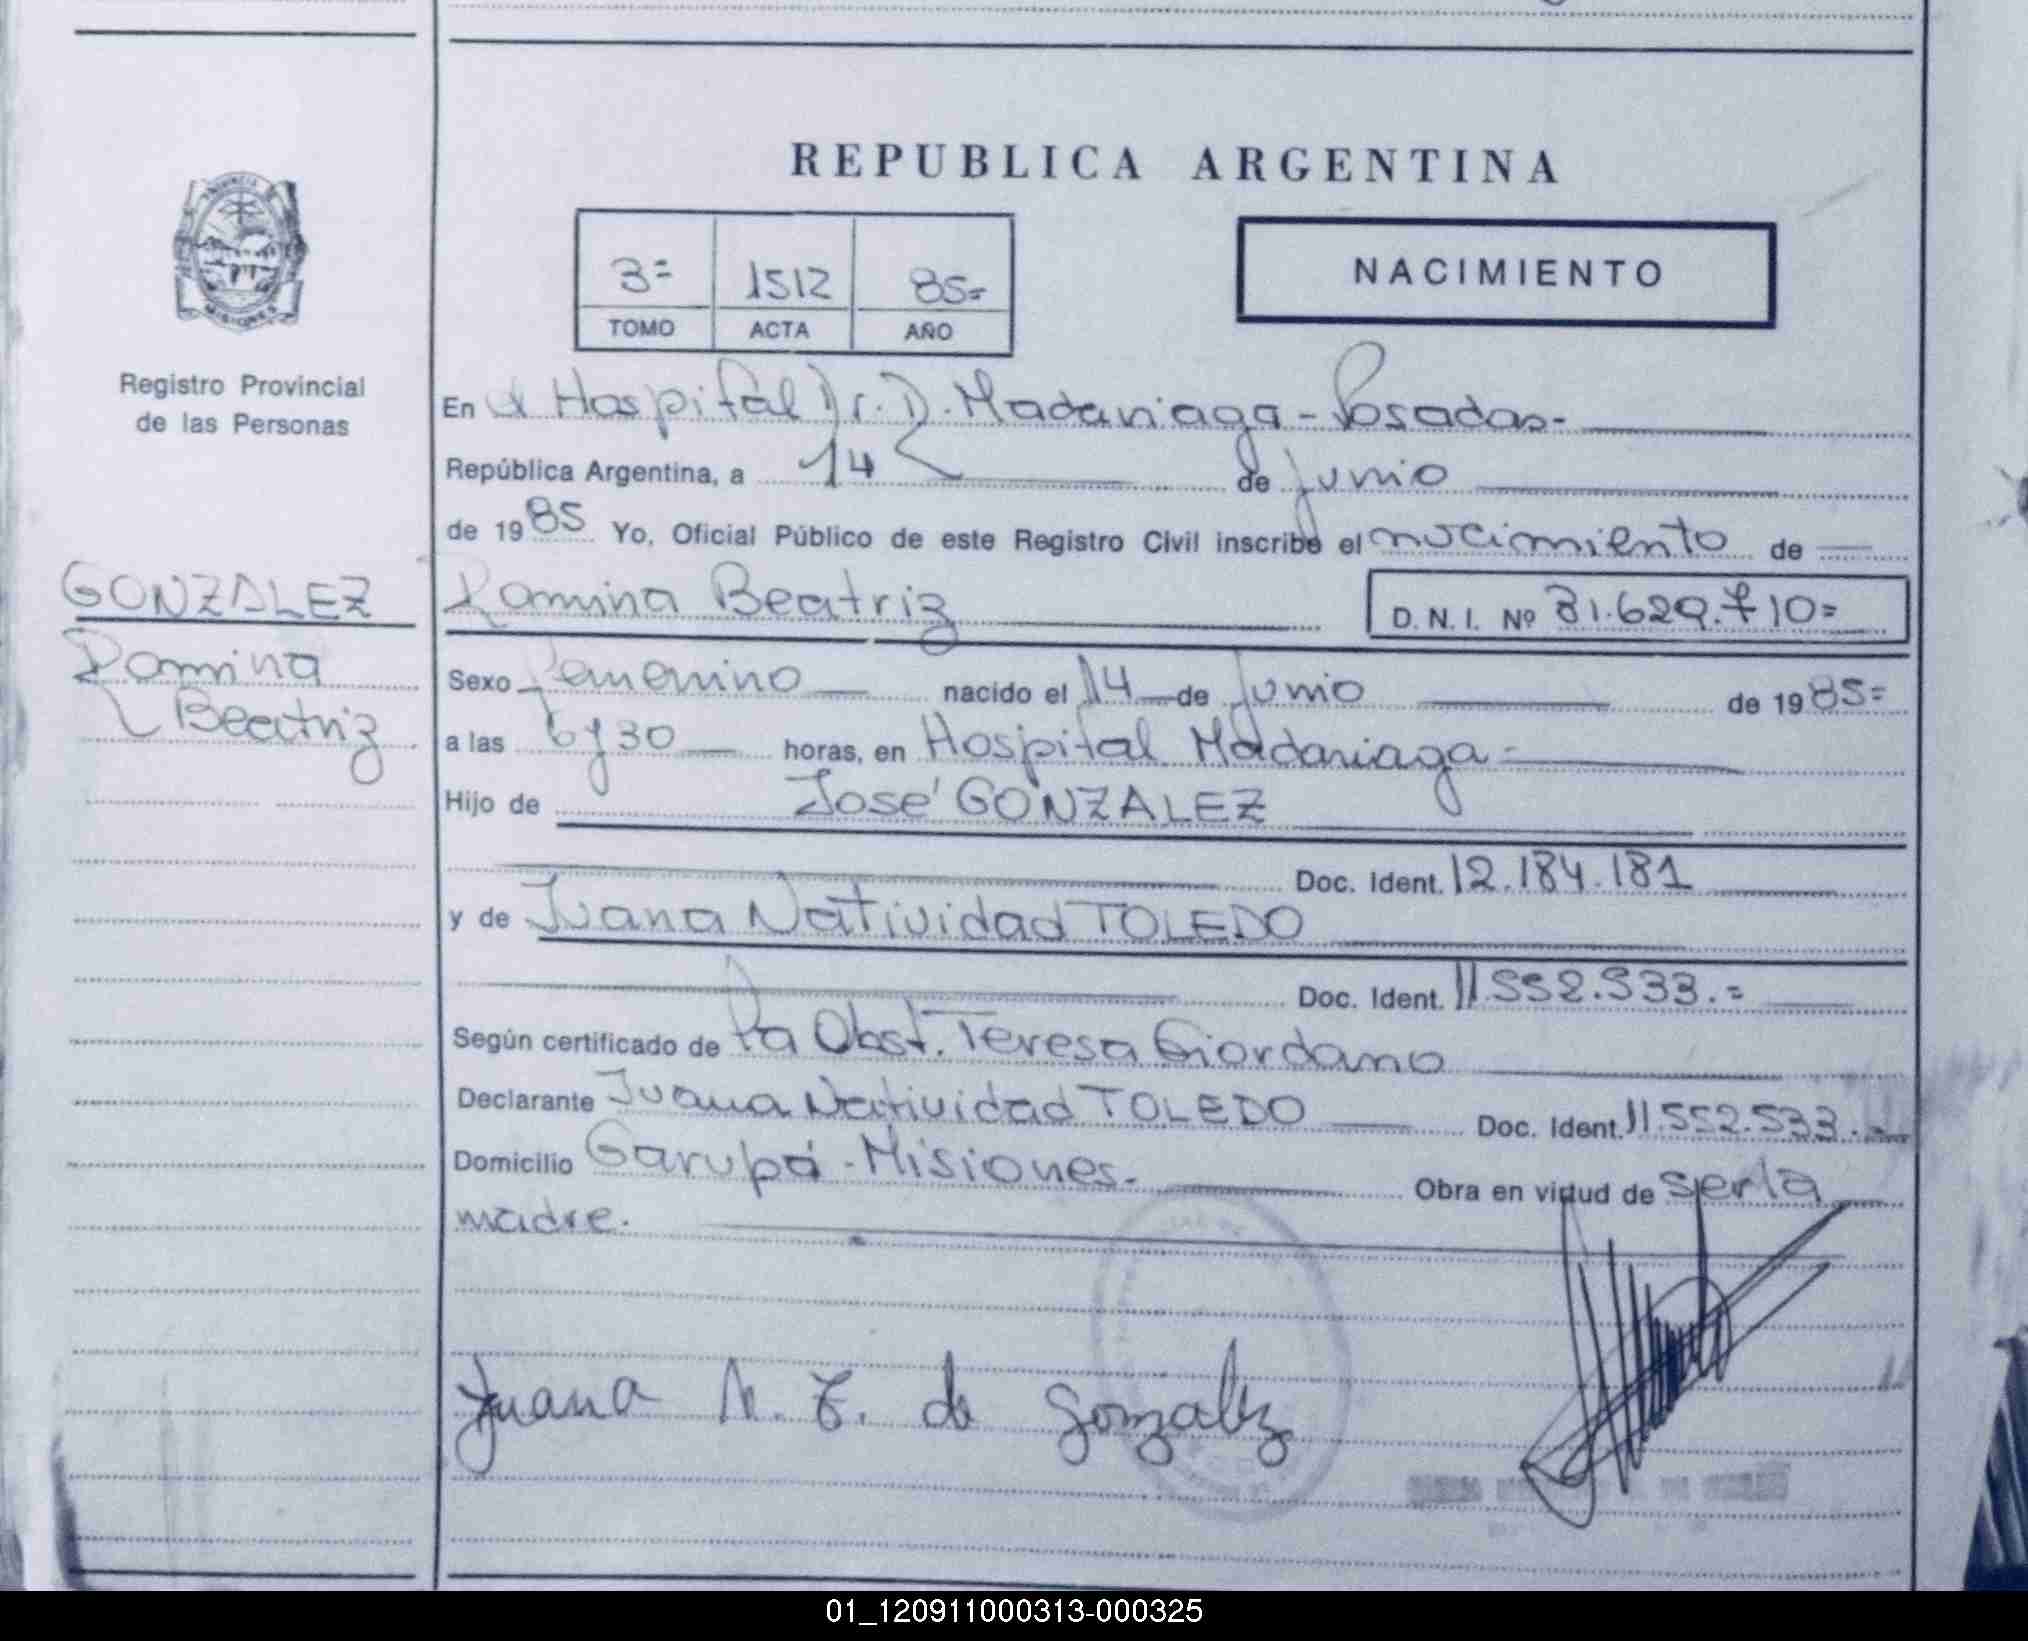 REPUBLICA ARGENTINA
3= 1512 85=
TOMO ACTA AÑO
NACIMIENTO
MISIONES
Registro Provincial
de las Personas
GONZALEZ
Romina
Beatriz
En el Hospital Dr. R. Madariaga - Posadas-
República Argentina, a 14 de Junio
de 1985 Yo, Oficial Público de este Registro Civil inscribo el nacimiento de
Romina Beatriz D. N. I. Nº 31.629.710=
Sexo femenino nacido el 14 de Junio de 1985=
a las 6 y 30 horas, en Hospital Madariaga-
Hijo de José GONZALEZ
Doc. Ident. 12.184.181
y de Juana Natividad TOLEDO
Doc. Ident. 11.552.533.=
Según certificado de la Obst. Teresa Giordano
Declarante Juana Natividad TOLEDO Doc. Ident. 11.552.533.-
Domicilio Garupá - Misiones. Obra en virtud de ser la
madre.
Juana N. T. de Gonzalez
01_120911000313-000325